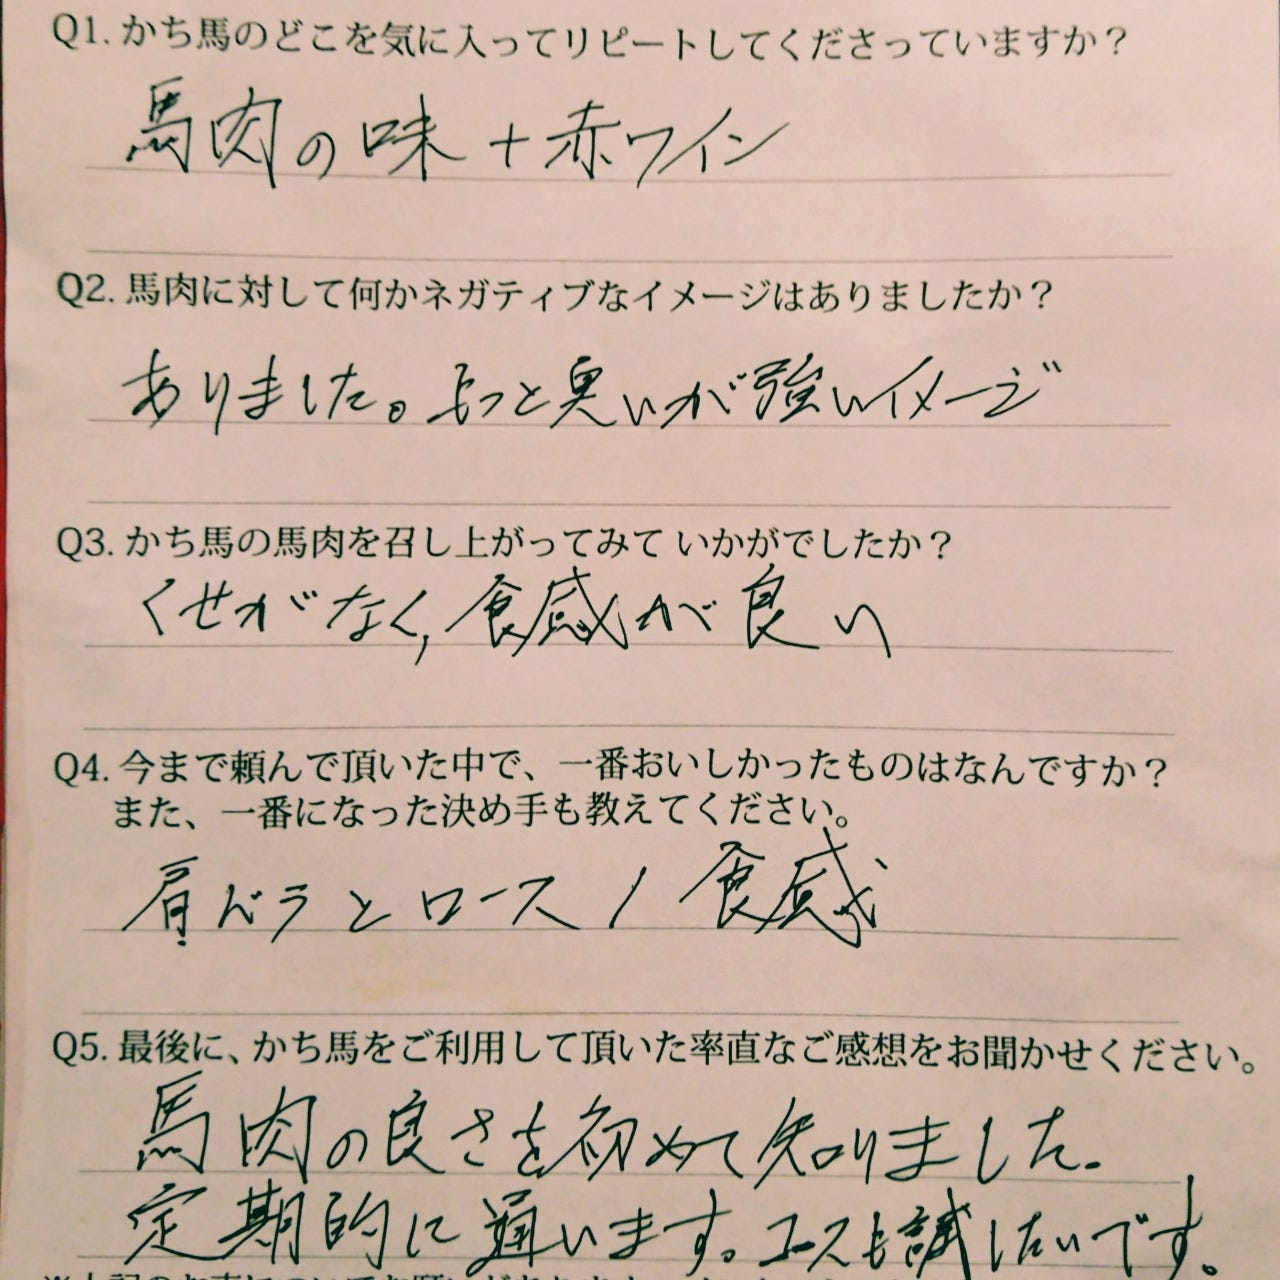 Q1. かち馬のどこを気に入ってリピートしてくださっていますか？
馬肉の味+赤ワイン
Q2. 馬肉に対して何かネガティブなイメージはありましたか？
ありました。もっと臭いが強いイメージ
Q3. かち馬の馬肉を召し上がってみて いかがでしたか？
くせがなく,食感が良い
Q4. 今まで頼んで頂いた中で、一番おいしかったものはなんですか？
また、一番になった決め手も教えてください。
肩バラとロース / 食感
Q5. 最後に、かち馬をご利用して頂いた率直なご感想をお聞かせください。
馬肉の良さを初めて知りました.
定期的に通います。コースも試したいです。